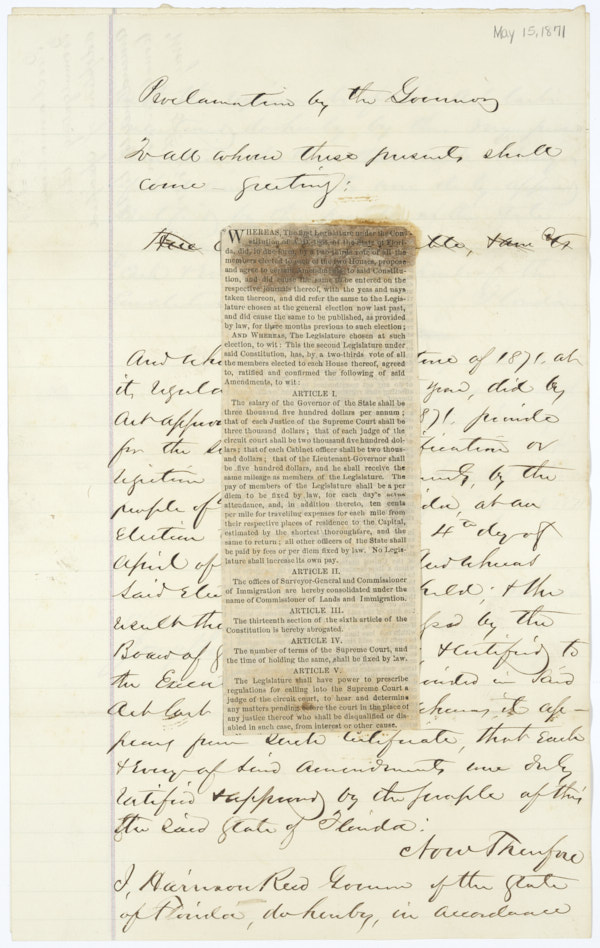 May 15, 1871
Proclamation by the Governor
To all whom these presents shall
come greeting:
WHEREAS, The first Legislature under the Con-
stitution of the State of Flori-
da, did, by a two-thirds vote of all the
members elected to each of the two Houses, propose
and agree to to said Constitu-
tion, and did cause the same to be entered on the
respective journals thereof, with the yeas and nays
taken thereon, and did refer the same to the Legis-
lature chosen at the general election now last past,
and did cause the same to be published, as provided
by law, for three months previous to such election;
AND WHEREAS, The Legislature chosen at such
election, to wit: This the second Legislature under
said Constitution, has, by a two-thirds vote of all
the members elected to each House thereof, agreed
to, ratified and confirmed the following of said
Amendments, to wit:
ARTICLE I.
The salary of the Governor of the State shall be
three thousand five hundred dollars per annum;
that of each Justice of the Supreme Court shall be
three thousand dollars; that of each judge of the
circuit court shall be two thousand five hundred dol-
lars; that of each Cabinet officer shall be two thous-
and dollars; that of the Lieutenant-Governor shall
be five hundred dollars, and he shall receive the
same mileage as members of the Legislature. The
pay of members of the Legislature shall be a per
diem to be fixed by law, for each day's active
attendance, and, in addition thereto, ten cents
per mile for traveling expenses for each mile from
their respective places of residence to the Capital,
estimated by the shortest thoroughfare, and the
same to return; all other officers of the State shall
be paid by fees or per diem fixed by law. No Legis-
lature shall increase its own pay.
ARTICLE II.
The offices of Surveyor-General and Commissioner
of Immigration are hereby consolidated under the
name of Commissioner of Lands and Immigration.
ARTICLE III.
The thirteenth section of the sixth article of the
Constitution is hereby abrogated.
ARTICLE IV.
The number of terms of the Supreme Court, and
the time of holding the same, shall be fixed by law.
ARTICLE V.
The Legislature shall have power to prescribe
regulations for calling into the Supreme Court a
judge of the circuit court, to hear and determine
any matters pending before the court in the place of
any justice thereof who shall be disqualified or dis-
abled in such case, from interest or other cause.
And whe ture of 1871, at
its regula year, did by
Act approv 1871, provide
for the su ification or
rejection by the
people of da, at an
Election 4th day of
April of And whereas
Said Elec held; & the
result the by the
Board of & certified to
the Execu vided in said
Act whereas it ap-
pears from such certificate, that each
& every of said amendments were duly
ratified & approved by the people of this
the said State of Florida:
Now Therefore
I, Harrison Reed Governor of the State
of Florida, do hereby, in accordance